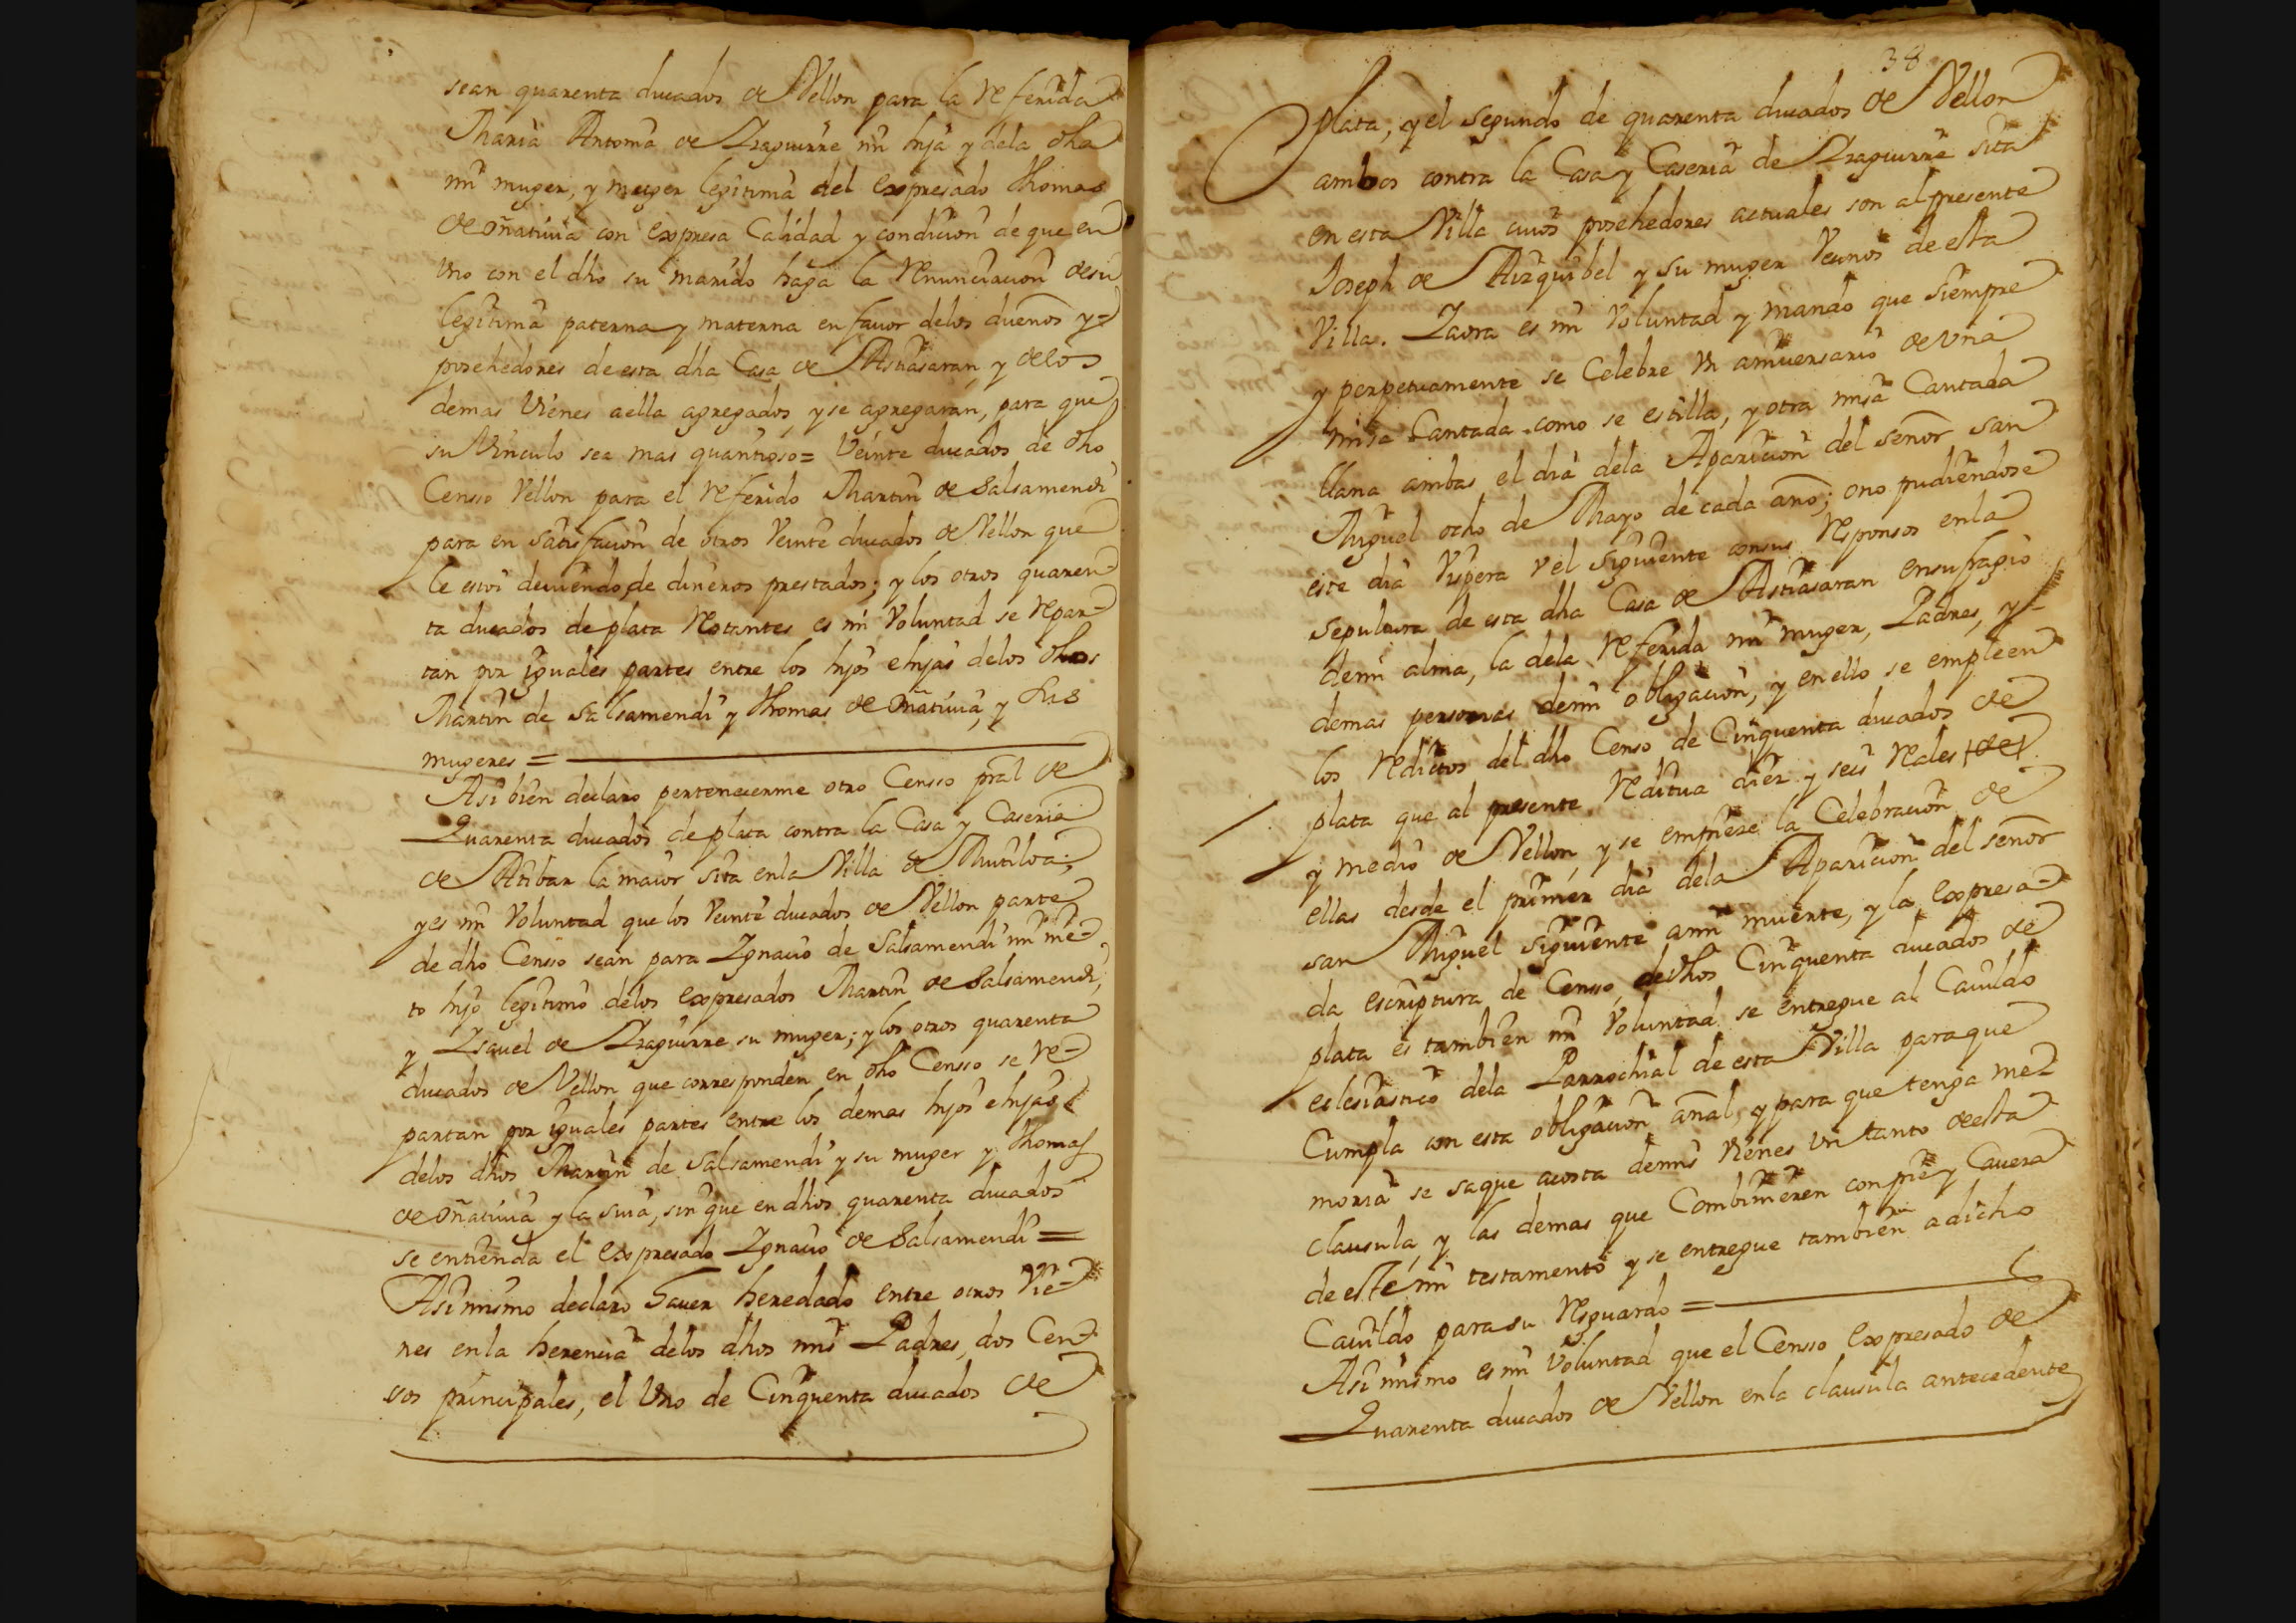 sean quarenta ducados de Vellon para la referida
Maria Antonia de Yraguirre mi hija y dela dha
mi muger, y muger legitima del expresado Thomas
de oñativia con expresa Calidad y condicion de que en
Uno con el dho su marido haga la renunciacion desu
legitima paterna y materna en favor delos dueños y
posehedores de esta dha Casa de Astiasaran, y delos
demas Vienes aella agregados, y se agregaran, para que
su Vinculo sea mas quantioso = Veinte ducados de dho
Censso Vellon para el referido Martin de Salsamendi
para en satisfacion de otros Veinte ducados de Vellon que
le estoi deviendo de dineros prestados; y los otros quaren-
ta ducados de plata restantes es mi Voluntad se repar-
tan por iguales partes entre los hijos e hijas delos dhos
Martin de Salsamendi y Thomas de oñativia, y sus
mugeres =
Asi bien declaro pertenecerme otro Censso pral de
Quarenta ducados de plata contra la Casa y Caseria
de Aribar la maior sita enla Villa de Mutiloa;
y es mi Voluntad que los Veinte ducados de Vellon parte
de dho Censso sean para Ygnacio de Salsamendi mi nie-
to hijo legitimo delos expresados Martin de Salsamendi,
y Ysavel de Yraguirre su muger; y los otros quarenta
ducados de Vellon que corresponden en dho Censso se re-
partan por iguales partes entre los demas hijos e hijas
delos dhos Martin de Salsamendi y su muger y Thomas
de oñativia y la suia, sin que en dhos quarenta ducados
se entienda el expresado Ygnacio de Salsamendi =
Asimismo declaro haver heredado entre otros Vie-
nes enla herencia delos dhos mis Padres, dos Cen-
sos principales, el Uno de Cinquenta ducados de
38
plata, y el segundo de quarenta ducados de Vellon
ambos contra la Casa y Caseria de Yraguirre sita
en esta Villa cuios posehedores actuales son al presente
Joseph de Aizquibel y su muger Vecinos de esta
Villa. Yaora es mi Voluntad y mando que siempre
y perpetuamente se Celebre Un aniversario de Una
misa Cantada como se estilla, y otra misa Cantada
llana ambas el dia dela Aparicion del señor san
Miguel ocho de Mayo de cada año; ono pudiendose
este dia Vispera vel siguiente consus responsos enla
sepultura de esta dha Casa de Astiasaran ensufragio
demi alma, la dela referida mi muger, Padres, y
demas personas demi obligacion, y en ello se empleen
los reditos del dho Censo de Cinquenta ducados de
plata que al presente reditua diez y seis reales de
y medio de Vellon, y se empieze la Celebracion de
ellas desde el primer dia dela Aparicion del señor
san Miguel siguiente ami muerte, y la expresa-
da escriptura de Censso dedhos Cinquenta ducados de
plata es tambien mi Voluntad se entregue al Cavildo
eclesiastico dela Parrochial de esta Villa paraque
Cumpla con esta obligacion añal, y para que tenga me-
moria se saque acosta demis Vienes Un tanto deesta
clausula, y las demas que Combinieren con pie y Cavera
de este mi testamento y se entregue tambien a dicho
Cavildo para su resguardo =
Asimismo es mi Voluntad que el Censso expresado de
Quarenta ducados de Vellon enla clausula antecedente